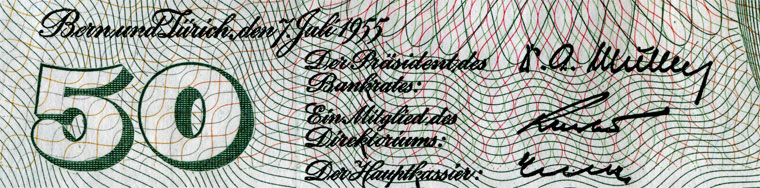 Bern und Zürich, den 7. Juli 1955
50
Der Präsident des
Bankrates:
Ein Mitglied des
Direktoriums:
Der Hauptkassier: